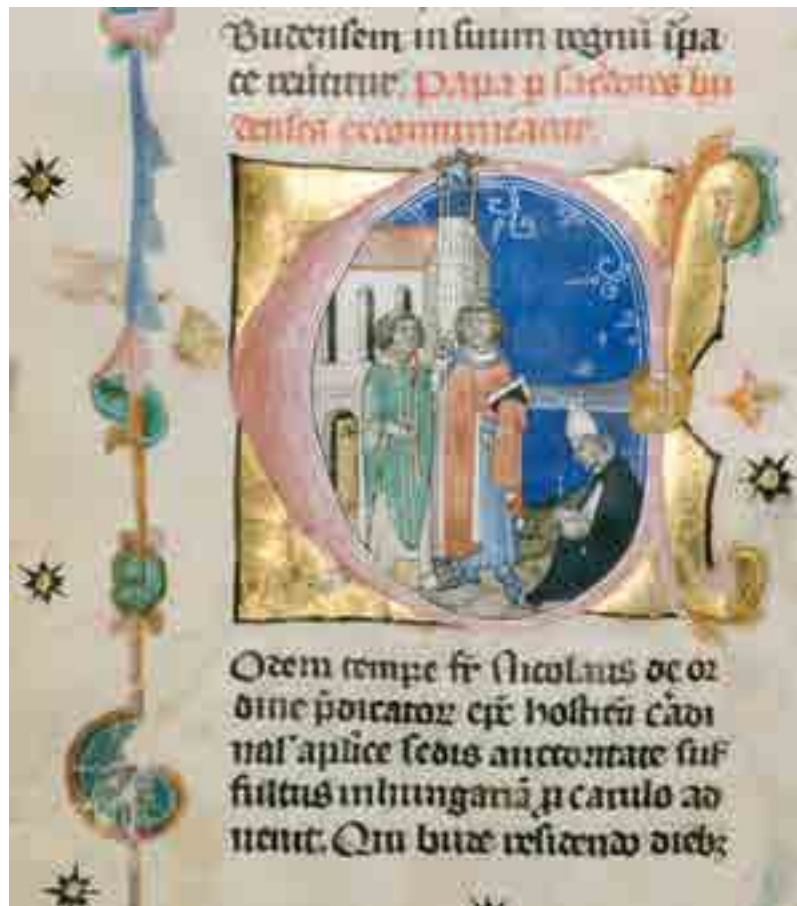 Budensem in suum regnū ī pa
ce reuertitur. Papa p sacerdotes bu
denses excommunicatur.
Odem tempe fr̄ Nicolaus de or
dine p̄dicatoꝝ ep̄c hostieñ cārdi
nal' aplice sedis auctoritate suf
fultus in hungariā p carulo ad
uenit. Qui bude residendo diebꝫ